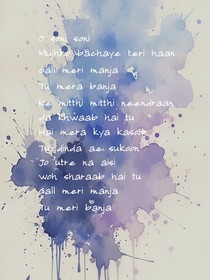 O soni soni
Mujhko bachaye teri haan
Gall meri manja
Tu mera banja
Ke mitthi mitthi neendraan
da khwaab hai tu
Hai mera kya kasoor
Tu dinda ae sukoon
Jo utre na aisi
woh sharaab hai tu
Gall meri manja
Tu meri banja